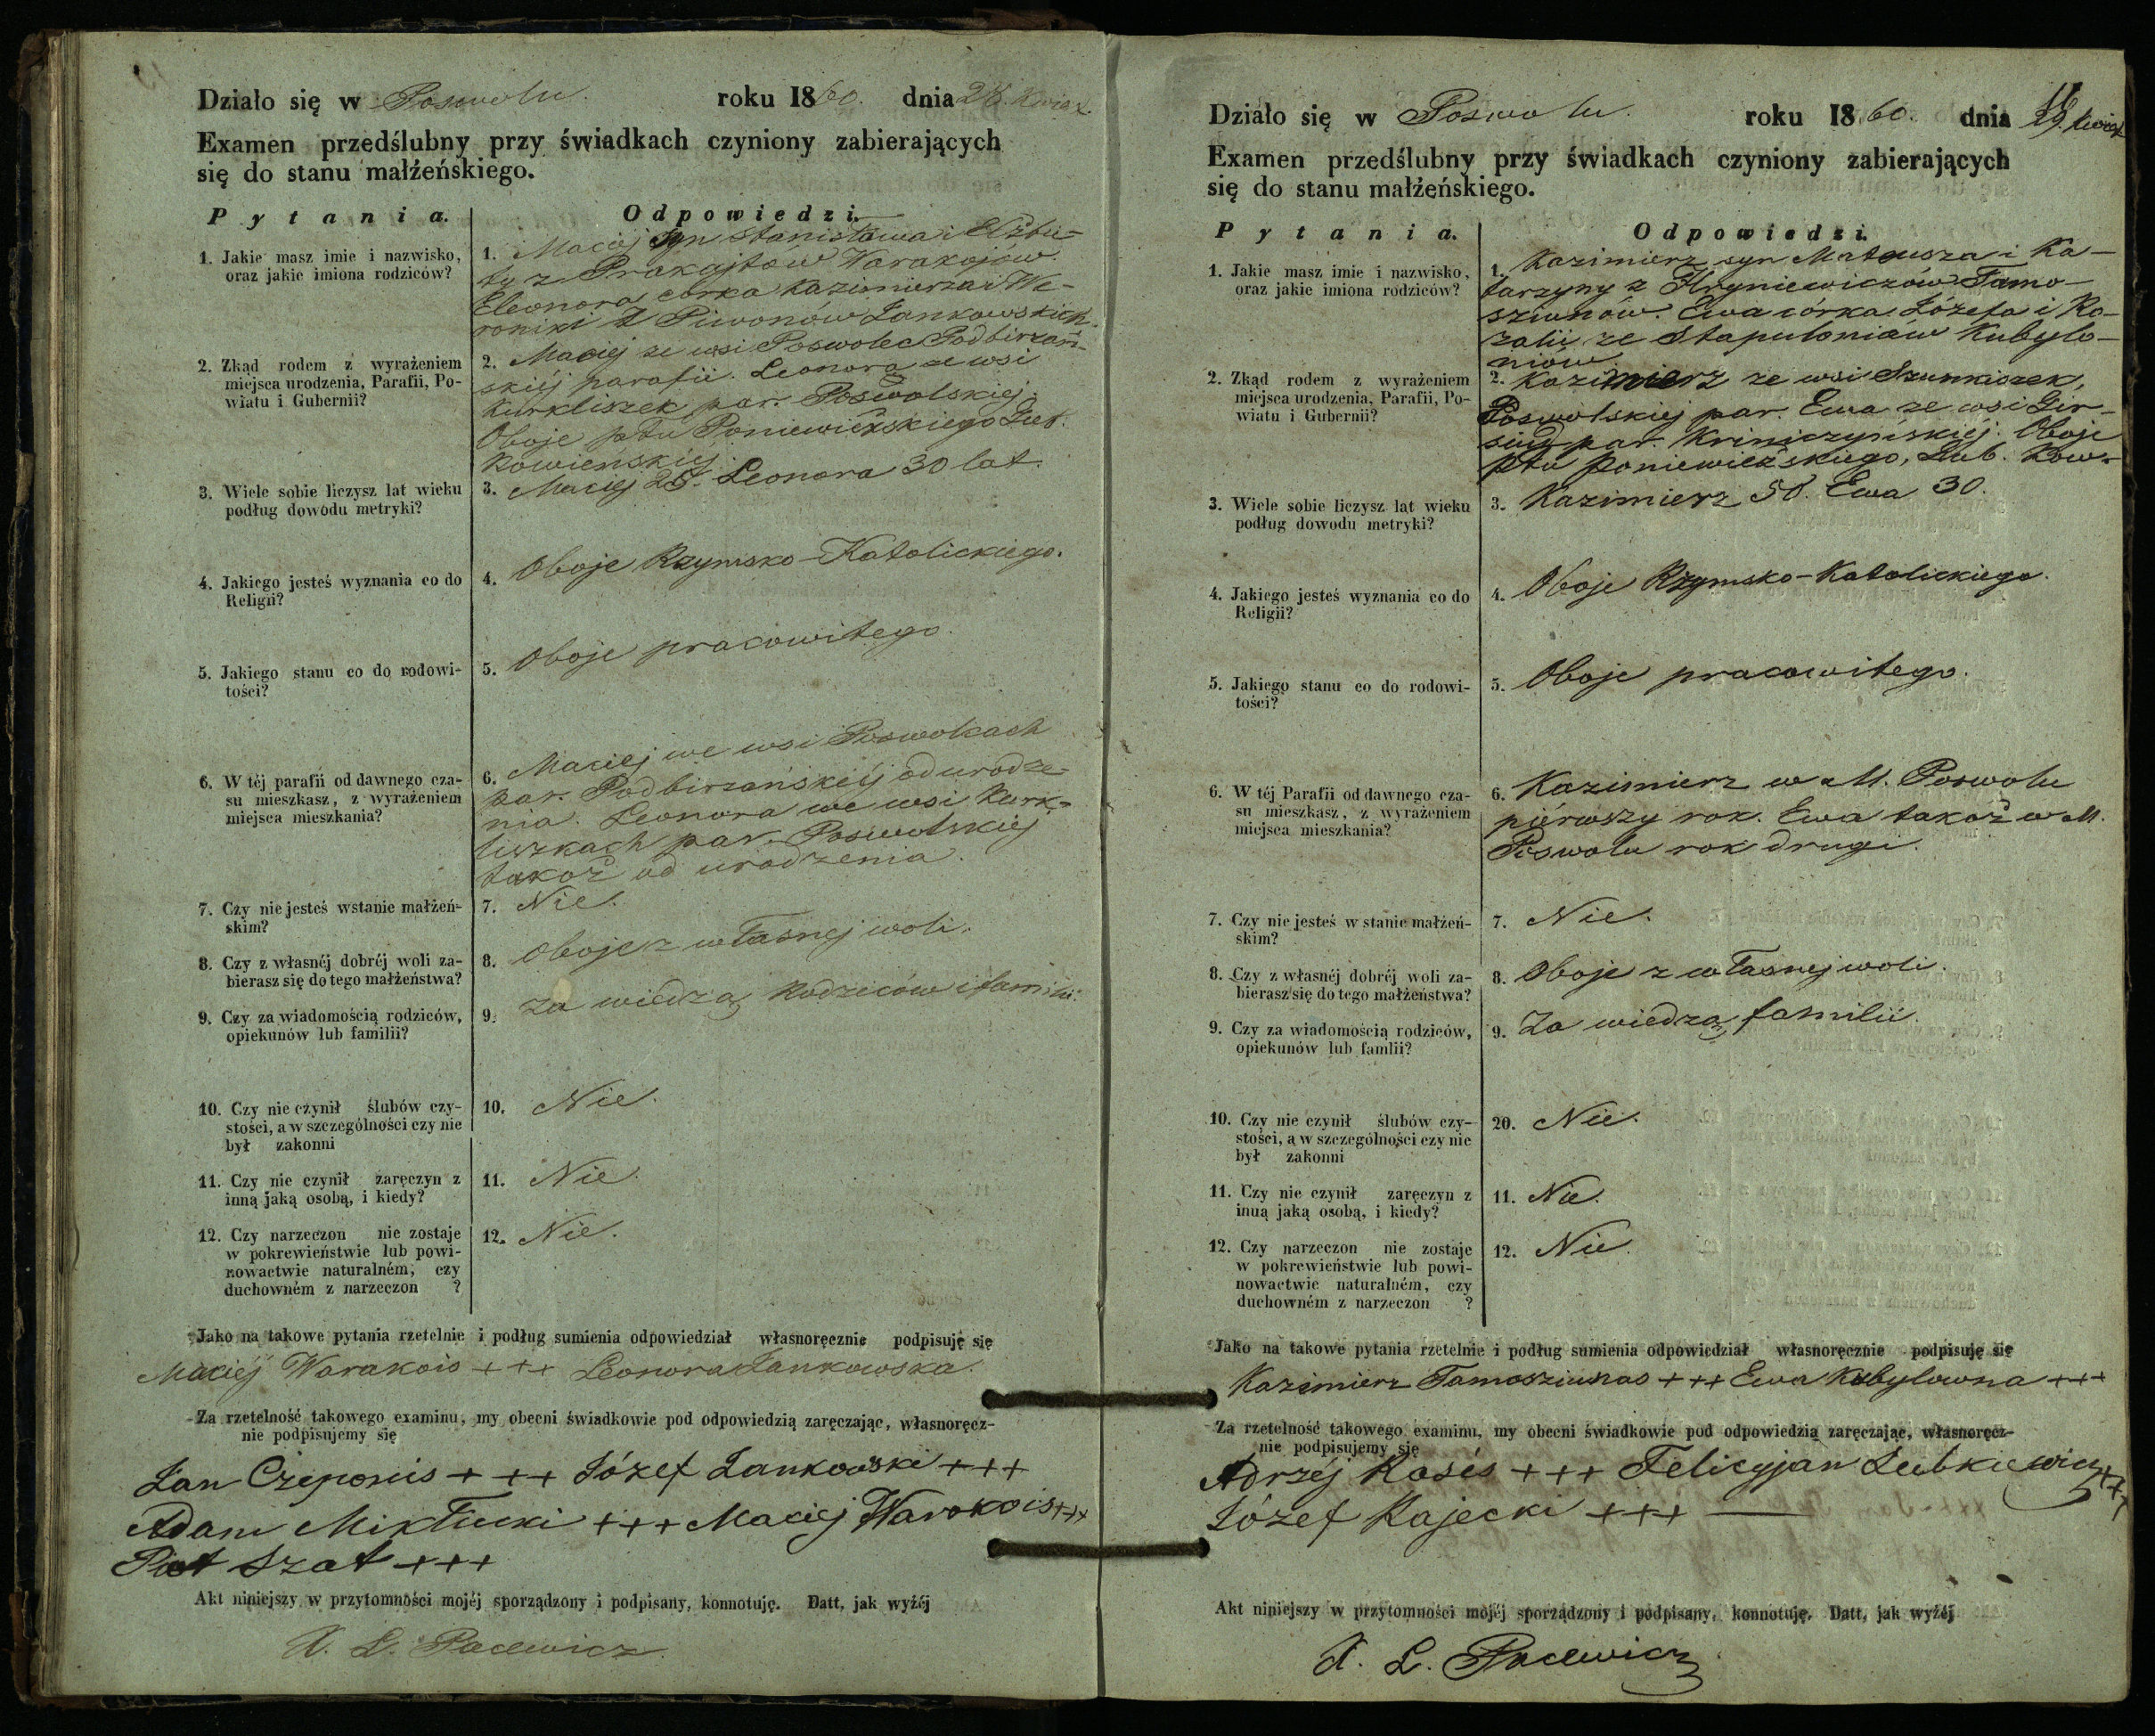 Działo się w Poswolu. roku 1860. dnia 28. Kwiet.
Examen przedślubny przy świadkach czyniony zabierających
się do stanu małżeńskiego.
Pytania. Odpowiedzi.
1. Jakie masz imie i nazwisko,
oraz jakie imiona rodziców?
1. Maciej syn Stanisława i Elżbie-
ty z Prakajtow Warakojów.
Eleonora córka Kazimierza i We-
roniki z Piwonów Jankowskich.
2. Zkąd rodem z wyrażeniem
miejsca urodzenia, Parafii, Po-
wiatu i Gubernii?
2. Maciej ze wsi Poswolec Podbirzań-
skiéj parafii. Leonora ze wsi
Kurkliszek par. Poswolskiej
Oboje ptu Poniewiežskiego Gub.
Kowieńskiej.
3. Wiele sobie liczysz lat wieku
podług dowodu metryki?
3. Maciej 25. Leonora 30 lat.
4. Jakiego jesteś wyznania co do
Religii?
4. Oboje Rzymsko-Katolickiego.
5. Jakiego stanu co do rodowi-
tości?
5. Oboje pracowitego.
6. W téj parafii od dawnego cza-
su mieszkasz, z wyrażeniem
miejsca mieszkania?
6. Maciej we wsi Poswolcach
par. Podbirzańskiéj od urodze-
nia. Leonora we wsi Kurk-
liszkach par. Poswolskiej
takoż od urodzenia.
7. Czy nie jesteś wstanie małżeń-
skim?
7. Nie.
8. Czy z własnéj dobréj woli za-
bierasz się do tego małżeństwa?
8. Oboje z własnej woli.
9. Czy za wiadomością rodziców,
opiekunów lub familii?
9. Za wiedzą Rodziców i familii.
10. Czy nie czynił ślubów czy-
stości, a w szczególności czy nie
był zakonni
10. Nie.
11. Czy nie czynił zaręczyn z
inną jaką osobą, i kiedy?
11. Nie.
12. Czy narzeczon nie zostaje
w pokrewieństwie lub powi-
nowactwie naturalném, czy
duchowném z narzeczon ?
12. Nie.
Jako na takowe pytania rzetelnie i podług sumienia odpowiedział własnoręcznie podpisuję się
Maciej Warakois +++ Leonora Jankowska.
Za rzetelność takowego examinu, my obecni świadkowie pod odpowiedzią zaręczając, własnoręcz-
nie podpisujemy się
Jan Czeponis +++ Józef Jankowski +++
Adam Mikłucki +++ Maciej Warokois +++
Piot Szat +++
Akt niniejszy w przytomności mojéj sporządzony i podpisany, konnotuję. Datt, jak wyźéj
X. L. Pacewicz.
Działo się w Poswolu. roku 1860. dnia 29. Kwiet.
Examen przedślubny przy świadkach czyniony zabierających
się do stanu małżeńskiego.
Pytania. Odpowiedzi.
1. Jakie masz imie i nazwisko,
oraz jakie imiona rodziców?
1. Kazimierz syn Mateusza i Ka-
tarzyny z Hryniewiczów Tamo-
sziunów. Ewa córka Józefa i Ro-
zalii ze Stapuloniów Kubylo-
niów
2. Zkąd rodem z wyrażeniem
miejsca urodzenia, Parafii, Po-
wiatu i Gubernii?
2. Kazimierz ze wsi Szumkiszek,
Poswolskiej par. Ewa ze wsi Gir-
siud par. Kriniczyńskiéj. Oboje
ptu Poniewiežskiego, Gub. Kow.
3. Wiele sobie liczysz lat wieku
podług dowodu metryki?
3. Kazimierz 50. Ewa 30.
4. Jakiego jesteś wyznania co do
Religii?
4. Oboje Rzymsko-Katolickiego.
5. Jakiego stanu co do rodowi-
tości?
5. Oboje pracowitego.
6. W téj Parafii od dawnego cza-
su mieszkasz, z wyrażeniem
miejsca mieszkania?
6. Kazimierz w M. Poswolu
piérwszy rok. Ewa takoż w M.
Poswolu rok drugi.
7. Czy nie jesteś w stanie małżeń-
skim?
7. Nie.
8. Czy z własnéj dobréj woli za-
bierasz się do tego małżeństwa?
8. Oboje z własnej woli.
9. Czy za wiadomością rodziców,
opiekunów lub famlii?
9. Za wiedzą familii.
10. Czy nie czynił ślubów czy-
stości, a w szczególności czy nie
był zakonni
20. Nie.
11. Czy nie czynił zaręczyn z
inuą jaką osobą, i kiedy?
11. Nie.
12. Czy narzeczon nie zostaje
w pokrewieństwie lub powi-
nowactwie naturalném, czy
duchowném z narzeczon ?
12. Nie.
Jako na takowe pytania rzetelnie i podług sumienia odpowiedział własnoręcznie podpisuję się
Kazimierz Tamosziunas +++ Ewa Kubylowna +++
Za rzetelność takowego examinu, my obecni świadkowie pod odpowiedzią zaręczając, własnoręcz-
nie podpisujemy się
Adrzéj Rosés +++ Felicyjan Lubkiewicz +++
Józef Rajecki +++
Akt niniejszy w przytomności mojéj sporządzony i podpisany, konnotuję. Datt, jak wyźéj
X. L. Pacewicz